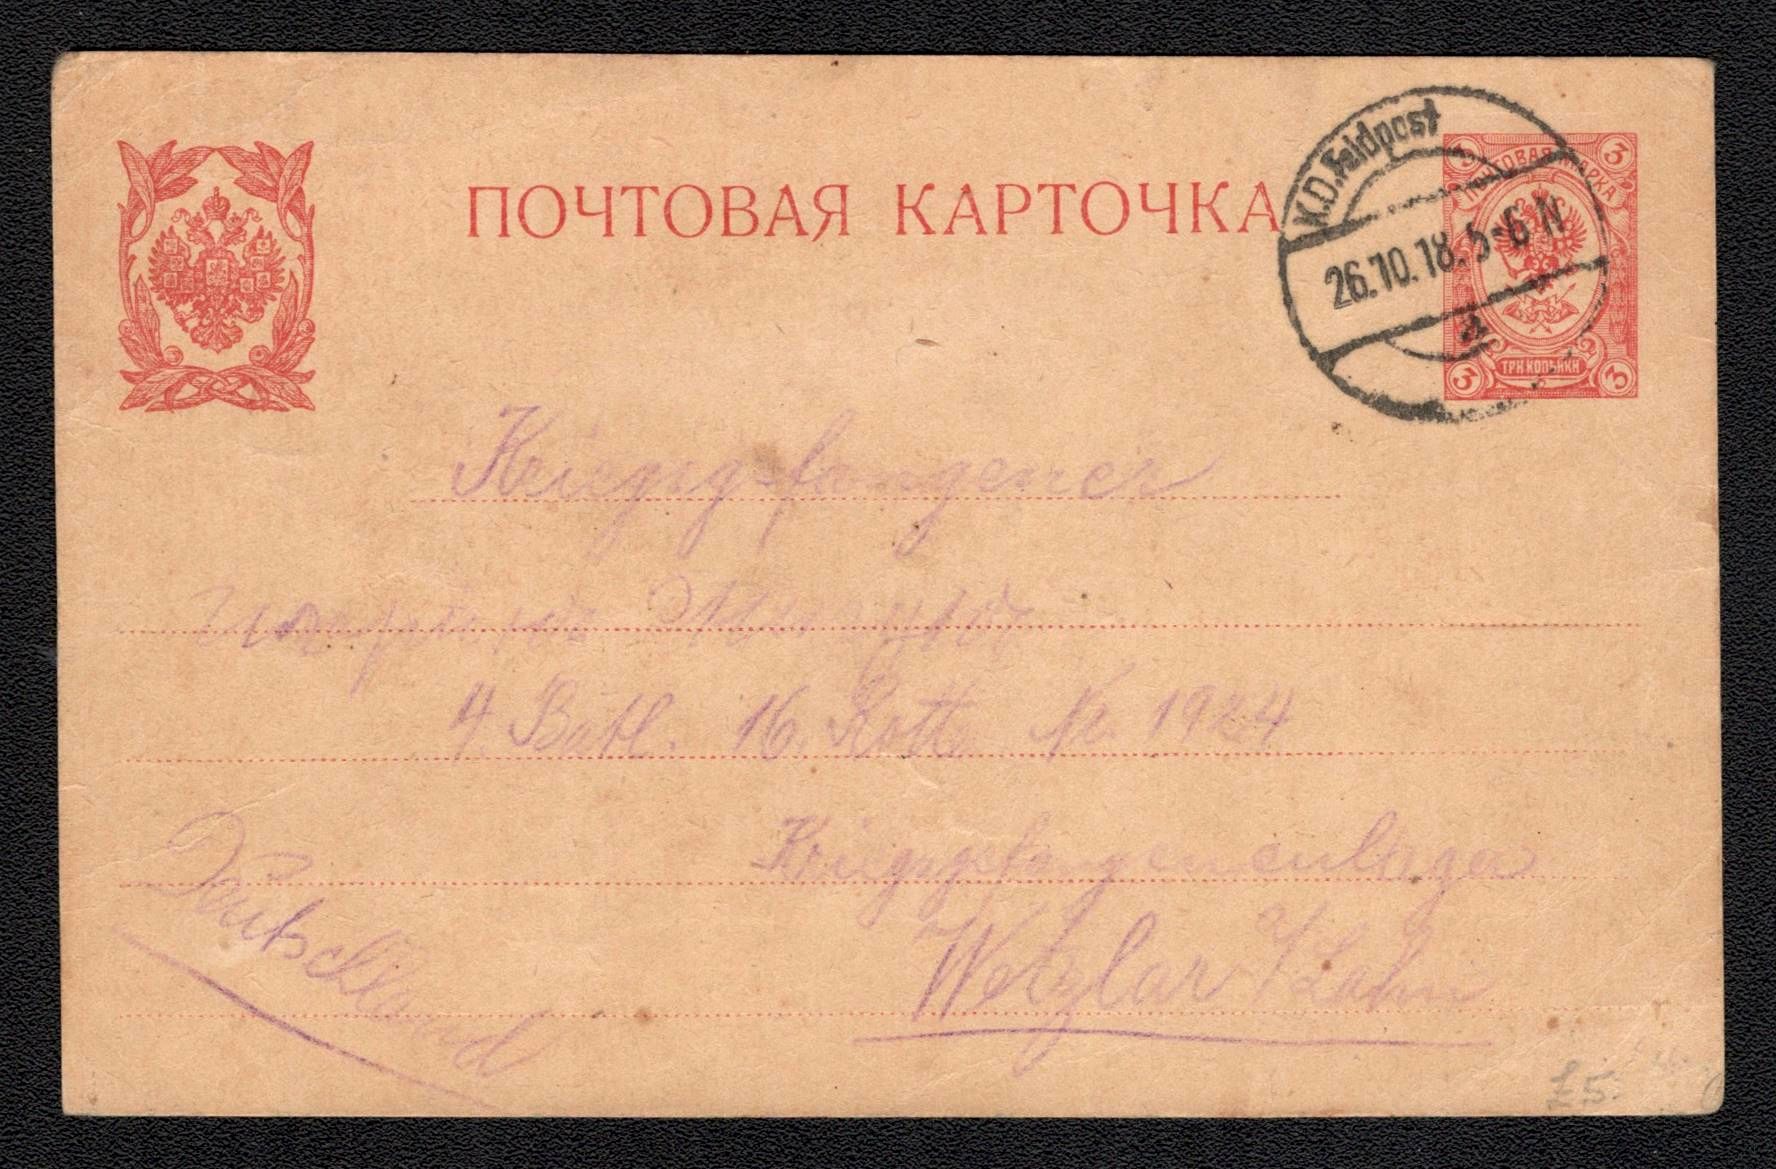 ПОЧТОВАЯ КАРТОЧКА
K.D. Feldpost
26.10.18. 5-6 N
a
ПОЧТОВАЯ МАРКА
3 3
ТРИ КОПѢЙКИ
3 3
Kriegsgefangener
4. Batl. 16. Rotte Nr. 1924
Kriegsgefangenenlager
Wetzlar /Lahn
Deutschland
£5.